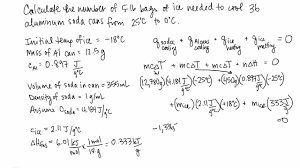 Calculate the number of 5 lb bags of ice needed to cool 36
aluminum soda cans from 25°C to 0°C.
Initial temp of ice = -18°C
Mass of Al can = 12.5g
C_Al = 0.897 J/g°C
Volume of soda in can = 355 mL
Density of soda = 1 g/mL
Assume C_soda = 4.184 J/g°C
C_ice = 2.11 J/g°C
ΔH_fus = 6.01 kJ/mol | 1 mol/18 g = 0.333 kJ/g
q soda cooling + q Al cans cooling + q ice heating + q ice melting = 0
mCΔT + mCΔT + mCΔT + nΔH = 0
(12,780g)(4.184 J/g°C)(-25°C) + (450g)(0.897 J/g°C)(-25°C)
+ (m ice)(2.11 J/g°C)(+18°C) + m ice (333 J/g)
= 0